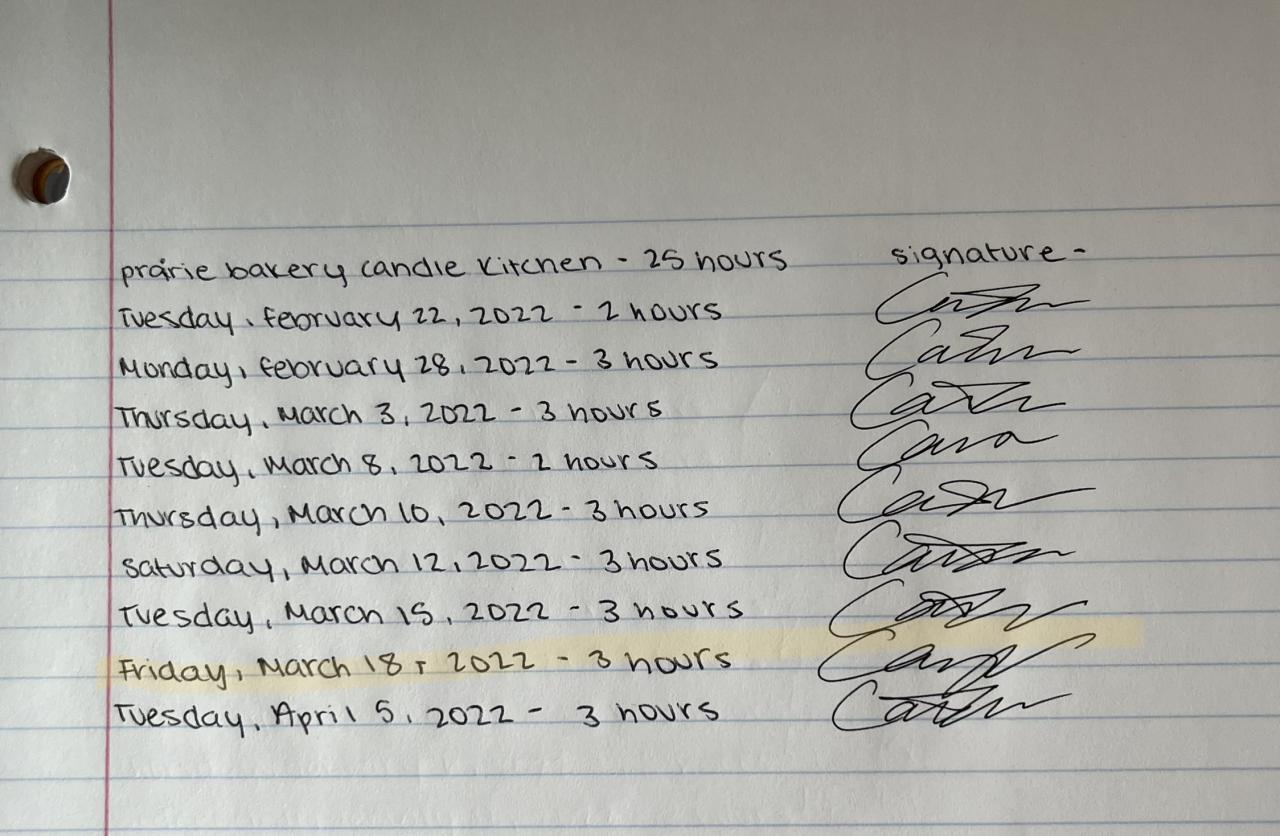 prairie bakery candle kitchen - 25 hours signature -
Tuesday, february 22, 2022 - 2 hours
Monday, february 28, 2022 - 3 hours
Thursday, March 3, 2022 - 3 hours
Tuesday, March 8, 2022 - 2 hours
Thursday, March 10, 2022 - 3 hours
Saturday, March 12, 2022 - 3 hours
Tuesday, March 15, 2022 - 3 hours
Friday, March 18, 2022 - 3 hours
Tuesday, April 5, 2022 - 3 hours